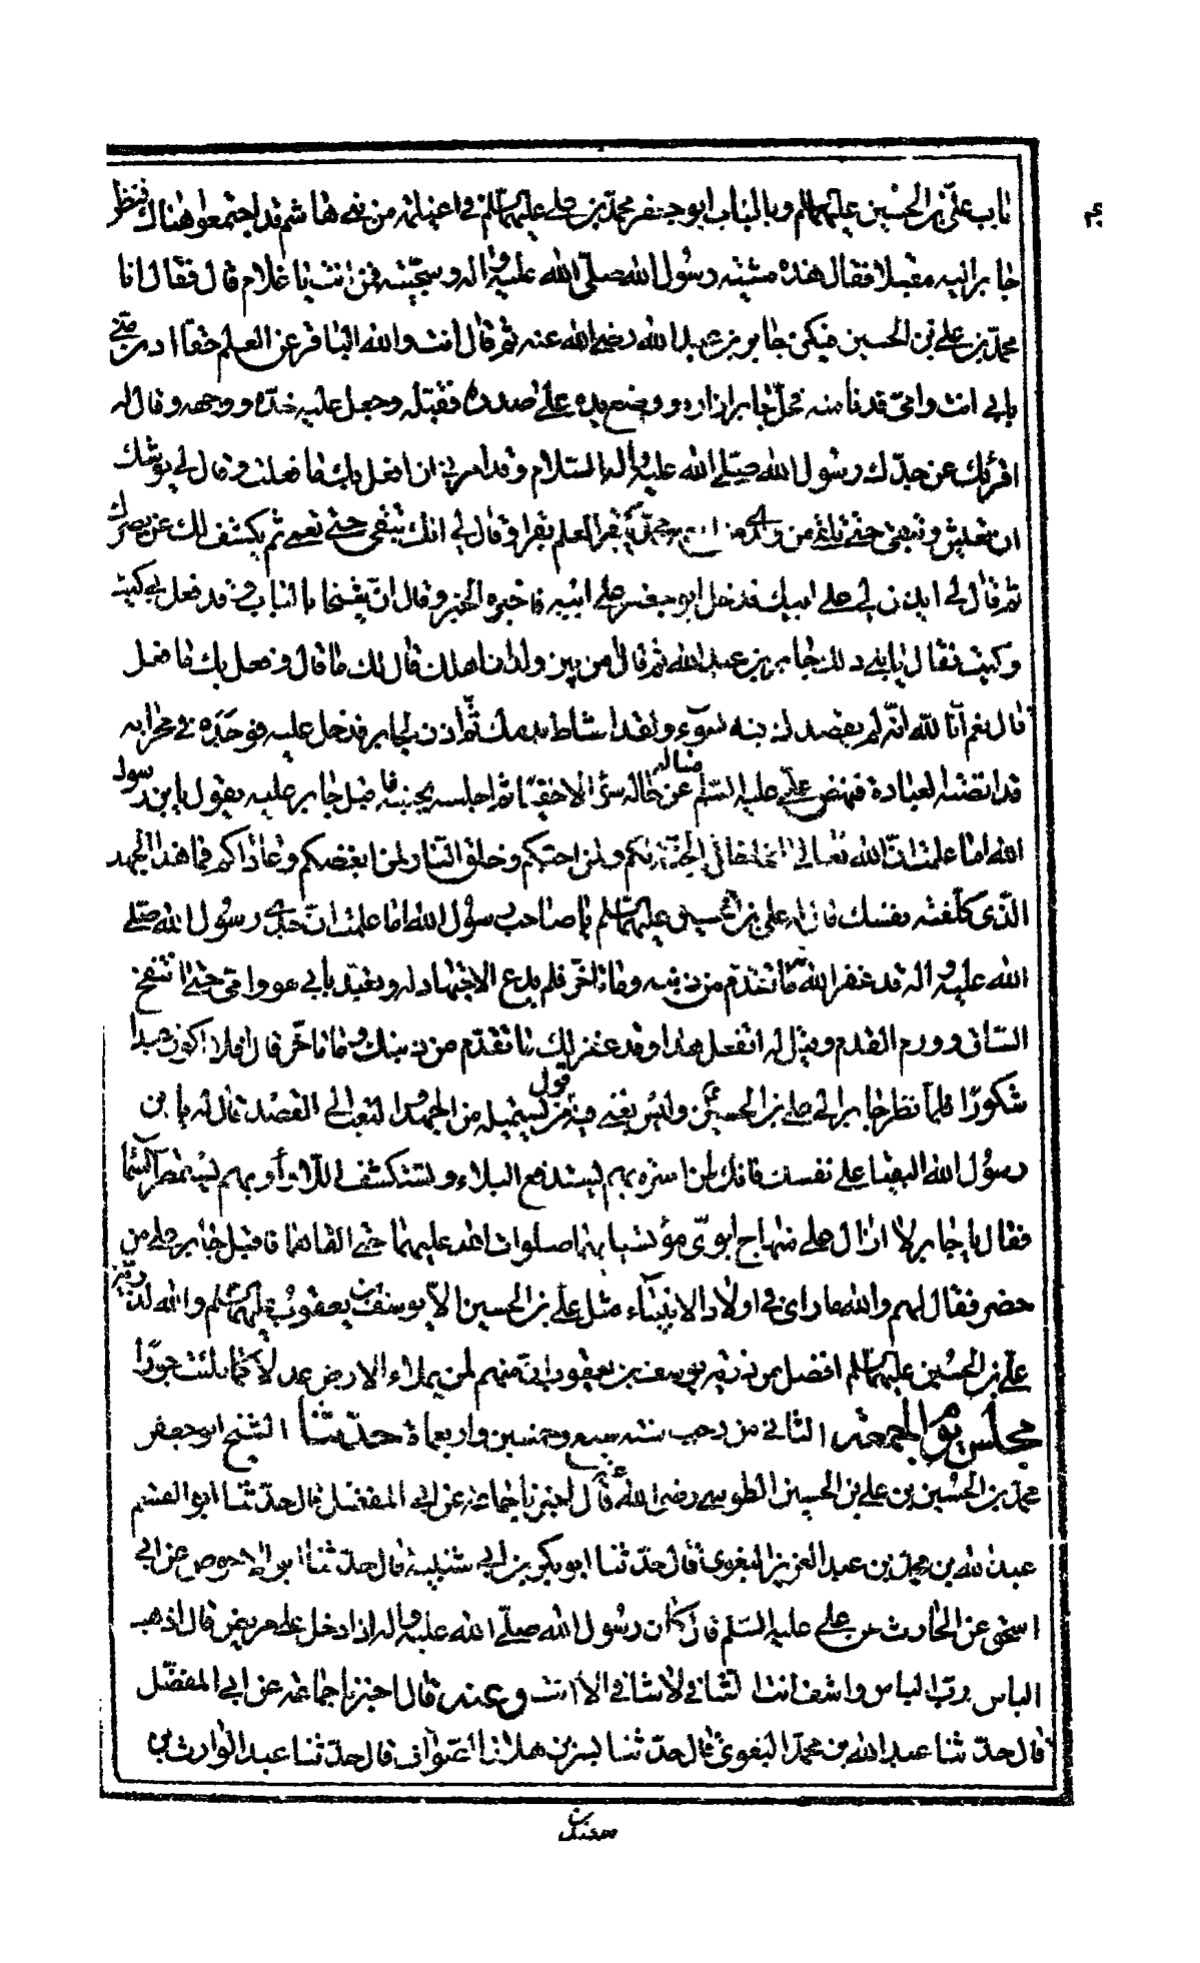 باب علي بن الحسين عليهما السلم وبالباب ابو جعفر محمد بن علي عليهما السلم في اغيلمة من بني هاشم قد اجتمعوا هناك فنظر
جابر اليه مقبلا فقال هذه مشية رسول الله صلى الله عليه واله وسجيته فمن انت يا غلام قال فقال انا
محمد بن علي بن الحسين فبكى جابر بن عبد الله رضي الله عنه ثم قال انت والله الباقر عن العلم حقا ادن مني
بابي انت وامي فدنا منه فحل جابر ازاره ووضع يده على صدره فقبله وجعل عليه خده ووجهه وقال له
اقرئك عن جدك رسول الله صلى الله عليه واله السلام وقد امرني ان افعل بك ما فعلت وقال لي يوشك
ان تعيش وتبقى حتى تلقى من ولدي من اسمه محمد يبقر العلم بقرا وقال لي انك تبقى حتى تعمى ثم يكشف لك عن بصرك
ثم قال لي ايذن لي على ابيك فدخل ابو جعفر على ابيه فاخبره الخبر وقال ان شيخا بالباب وقد فعل بي كيت
وكيت فقال يا بني ذلك جابر بن عبد الله ثم قال امن بين ولدان اهلك قال لك ما قال وفعل بك ما فعل
قال نعم انا لله انه لم يقصدك فيه بسوء ولقد اشاط بدمك ثم اذن لجابر فدخل عليه فوجده في محرابه
قد انضته العبادة فنهض علي عليه السلم فساله عن حاله سؤالا حفيا ثم اجلسه بجنبه فاقبل جابر عليه يقول يابن رسول
الله اما علمت ان الله تعالى انما خلق الجنة لكم ولمن احبكم وخلق النار لمن ابغضكم وعاداكم فما هذا الجهد
الذي كلفته نفسك قال له علي بن الحسين عليهما السلم يا صاحب رسول الله اما علمت ان جدي رسول الله صلى
الله عليه واله قد غفر الله له ما تقدم من ذنبه وما تاخر فلم يدع الاجتهاد له وتعبد بابي هو وامي حتى انتفخ
الساق وورم القدم وقيل له اتفعل هذا وقد غفر لك ما تقدم من ذنبك وما تاخر قال افلا اكون عبدا
شكورا فلما نظر جابر الى علي بن الحسين وليس يغني فيه من قول يستميله من الجهد والتعب الى القصد قال له يا بن
رسول الله البقيا على نفسك فانك لمن اسرة بهم يستدفع البلاء وتستكشف اللاواء وبهم يستمطر السماء
فقال يا جابر لا ازال على منهاج ابوي مؤتسيا بهما صلوات الله عليهما حتى القاهما فاقبل جابر على من
حضر فقال لهم والله ما راى في اولاد الانبياء مثل علي بن الحسين الا يوسف بن يعقوب عليهما السلم والله لذرية
علي بن الحسين عليهما السلم افضل من ذرية يوسف بن يعقوب ان منهم لمن يملاء الارض عدلا كما ملئت جورا
مجلس يوم الجمعة الثاني من رجب سنة سبع وخمسين واربعماة حدثنا الشيخ ابو جعفر
محمد بن الحسين بن علي بن الحسين الطوسي رضي الله عنه قال اخبرنا جماعة عن ابي المفضل قال حدثنا ابو القسم
عبد الله بن محمد بن عبد العزيز البغوي قال حدثنا ابو بكر بن ابي شيبة قال حدثنا ابو الاحوص عن ابي
اسحق عن الحارث عن علي عليه السلم قال كان رسول الله صلى الله عليه واله اذا دخل على مريض قال اذهب
الباس رب الباس واشف انت الشافي لا شافي الا انت وعنه قال اخبرنا جماعة عن ابي المفضل
قال حدثنا عبد الله بن محمد البغوي قال حدثنا بشر بن هلال الصواف قال حدثنا عبد الوارث بن